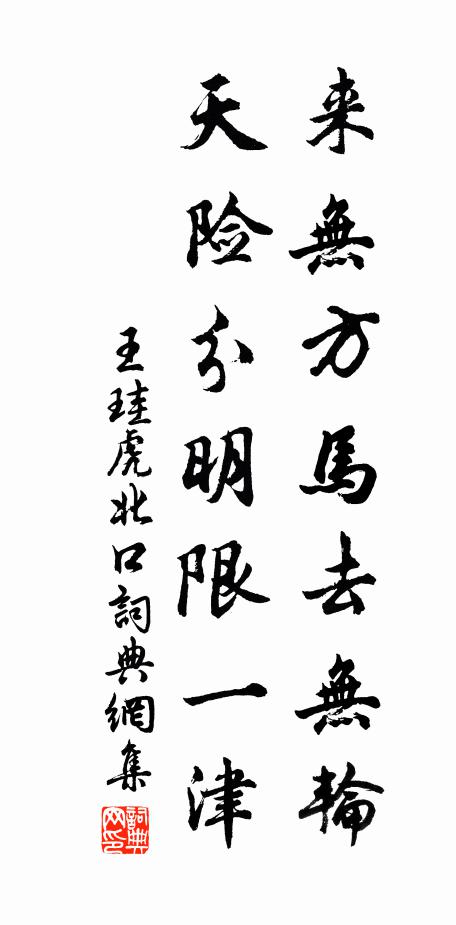 来無方馬去無輪
天险分明限一津
王珪虎北口詞典網集
詞典网印